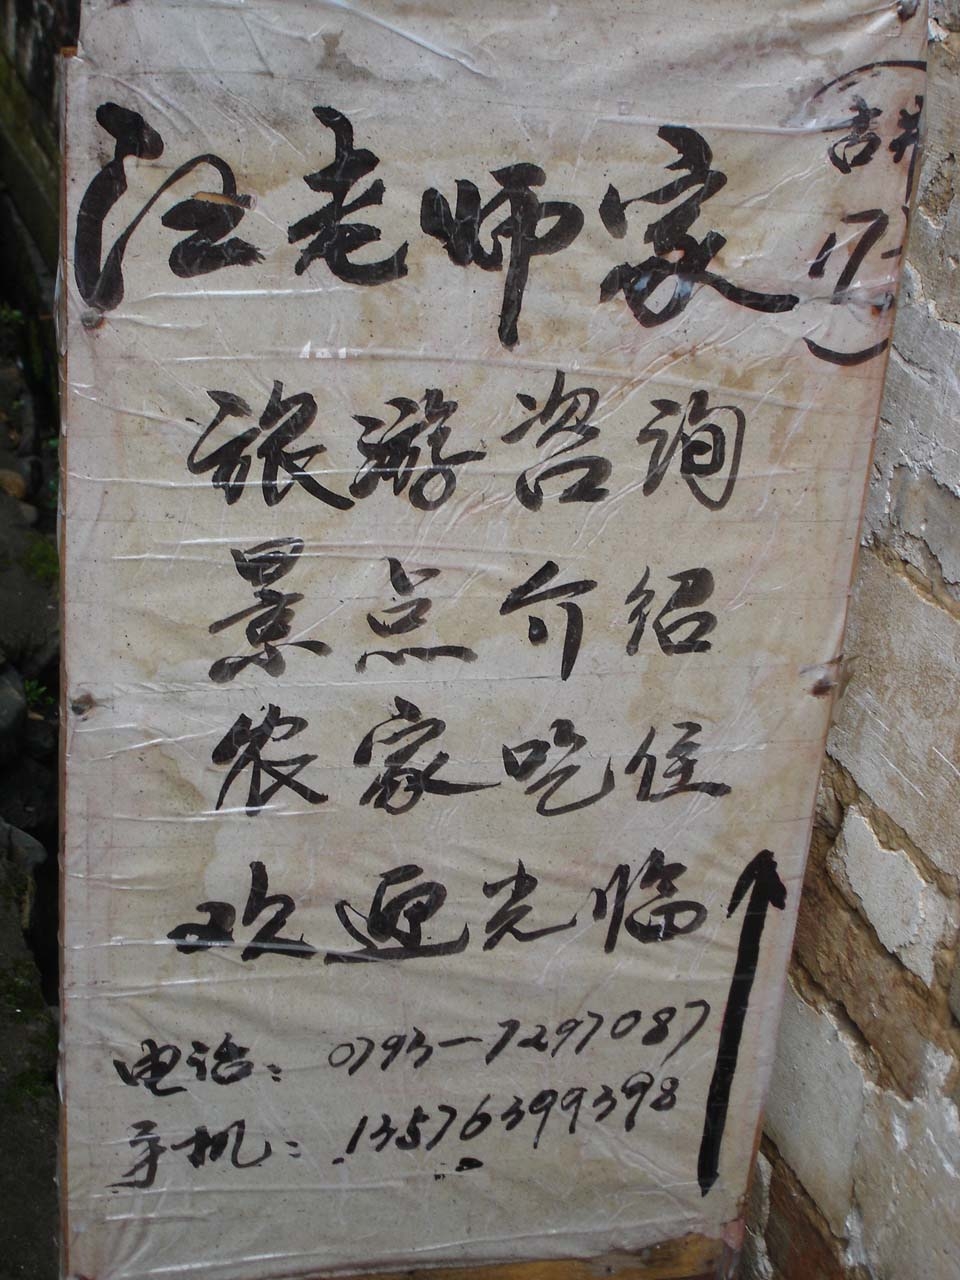 汪老师家
旅游咨询
景点介绍
农家吃住
欢迎光临
电话：0793-7297087
手机：13576399398